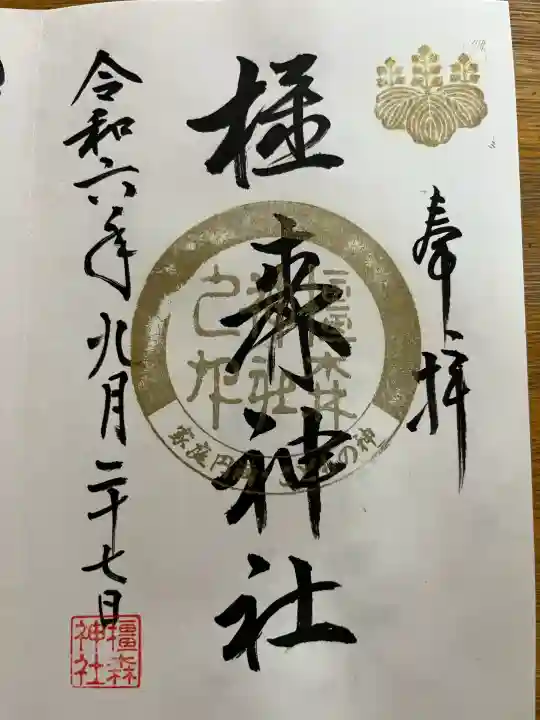 奉拝
橿森神社
橿森
神社
家庭円満
の神
令和六年九月二十七日
橿森
神社